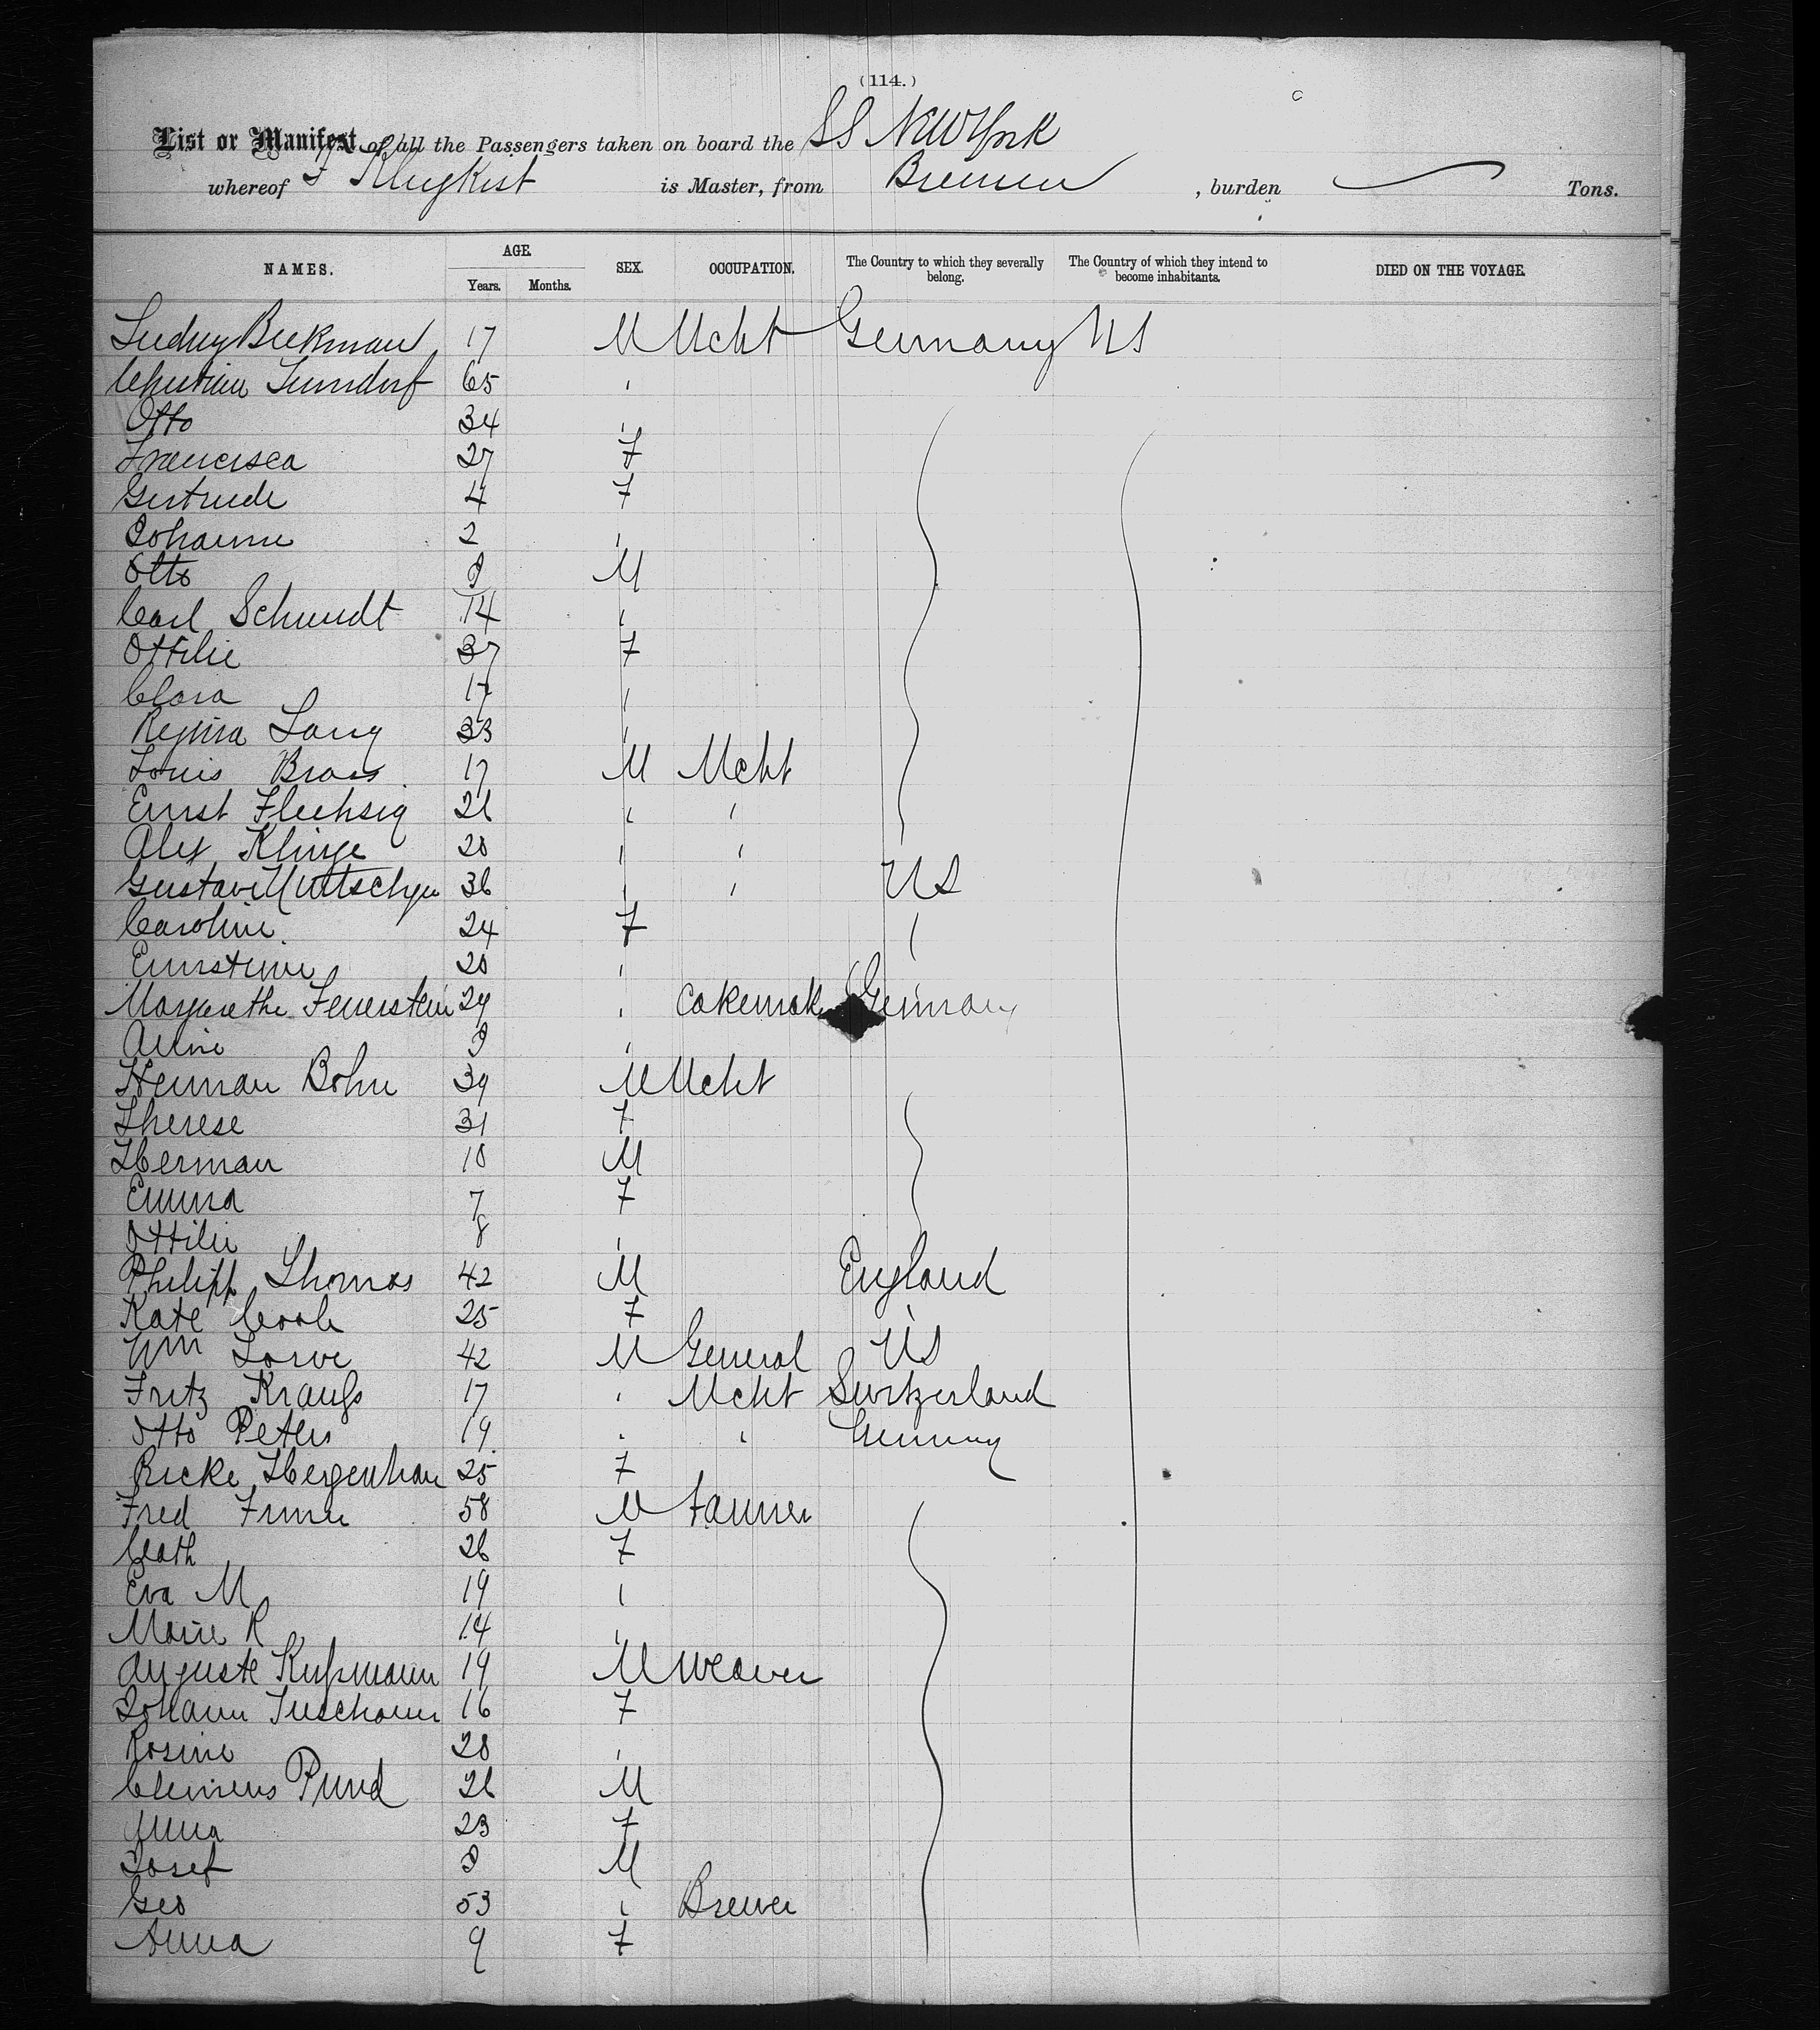 (114.)
List or Manifest of all the Passengers taken on board the SS New York
whereof F Kluykist is Master, from Bremen, burden Tons.
NAMES. AGE. SEX. OCCUPATION. The Country to which they severally belong. The Country of which they intend to become inhabitants. DIED ON THE VOYAGE.
Years. Months.
Ludwig Beekman 17 M Mcht Germany US
Christian 65 "
Otto 34 "
Francisca 27 F
Gertrude 4 F
Johanne 2 "
Otto M
Carl Schmidt 14 "
Ottilie 37 F
Clara 17 "
Regina Lang 33 "
Louis Brass 17 M Mcht
Ernst Flechsig 21 " "
Alex Klinge 28 " "
Gustav 36 " " US
Caroline 24 F "
Ernstine 20 "
Margarethe Feuerstein 29 " Cakemak Germany
"
Herman Bohn 39 M Mcht
Therese 31 F
Herman 10 M
Emma 7 F
Ottilie 8 "
Philipp Thomas 42 M England
Kate 25 F "
Wm 42 M General US
Fritz Kraufs 17 " Mcht Switzerland
Otto Peters 19 " " Germany
Ricke Hergenhan 25 F
Fred 58 M Farmer
Cath 26 F
Eva M 19 "
Marie K 14 "
Auguste Kufsmann 19 M Weaver
Johann 16 F
Rosine 28 "
Clemens Pund 26 M
Anna 23 F
Josef M
Geo 53 " Brewer
Anna 9 F